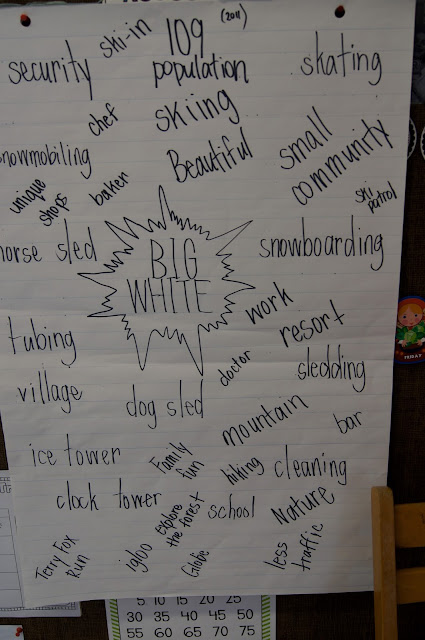 ski-in
109
(2011)
population
security
skating
chef
skiing
snowmobiling
Beautiful
small
community
unique
shops
baken
ski
patrol
horse sled
BIG
WHITE
snowboarding
work
resort
tubing
doctor
sledding
village
dog sled
mountain
bar
ice tower
Family
fun
hiking
cleaning
clock tower
explore
the forest
school
Nature
Terry Fox
Run
igloo
less
traffic
5 10 15 20 25
30 35 40 45 50
55 60 65 70 75